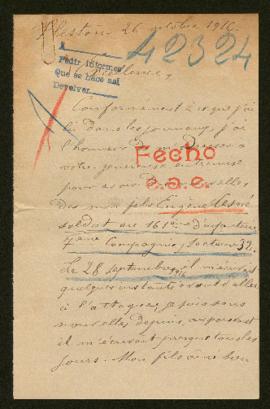 Plestan 26 octobre 1916.
A
Pedir informes
Que se hace así
Devolver
42324
Excellence,
Conformément à ce que j'ai
lu dans les journaux j'ai
l'honneur de m'adresser à
votre généreuse entremise
pour avoir des nouvelles
Fecho
e.a.e.
de mon fils Eugène
soldat au 161ème d'infanterie
4ème Compagnie, Secteur 39.
Le 28 septembre, il m'écrivait
quelques instants avant d'aller
à l'attaque, je suis sans
nouvelles depuis, cependant
il m'écrivait presque tous les
jours. Mon fils